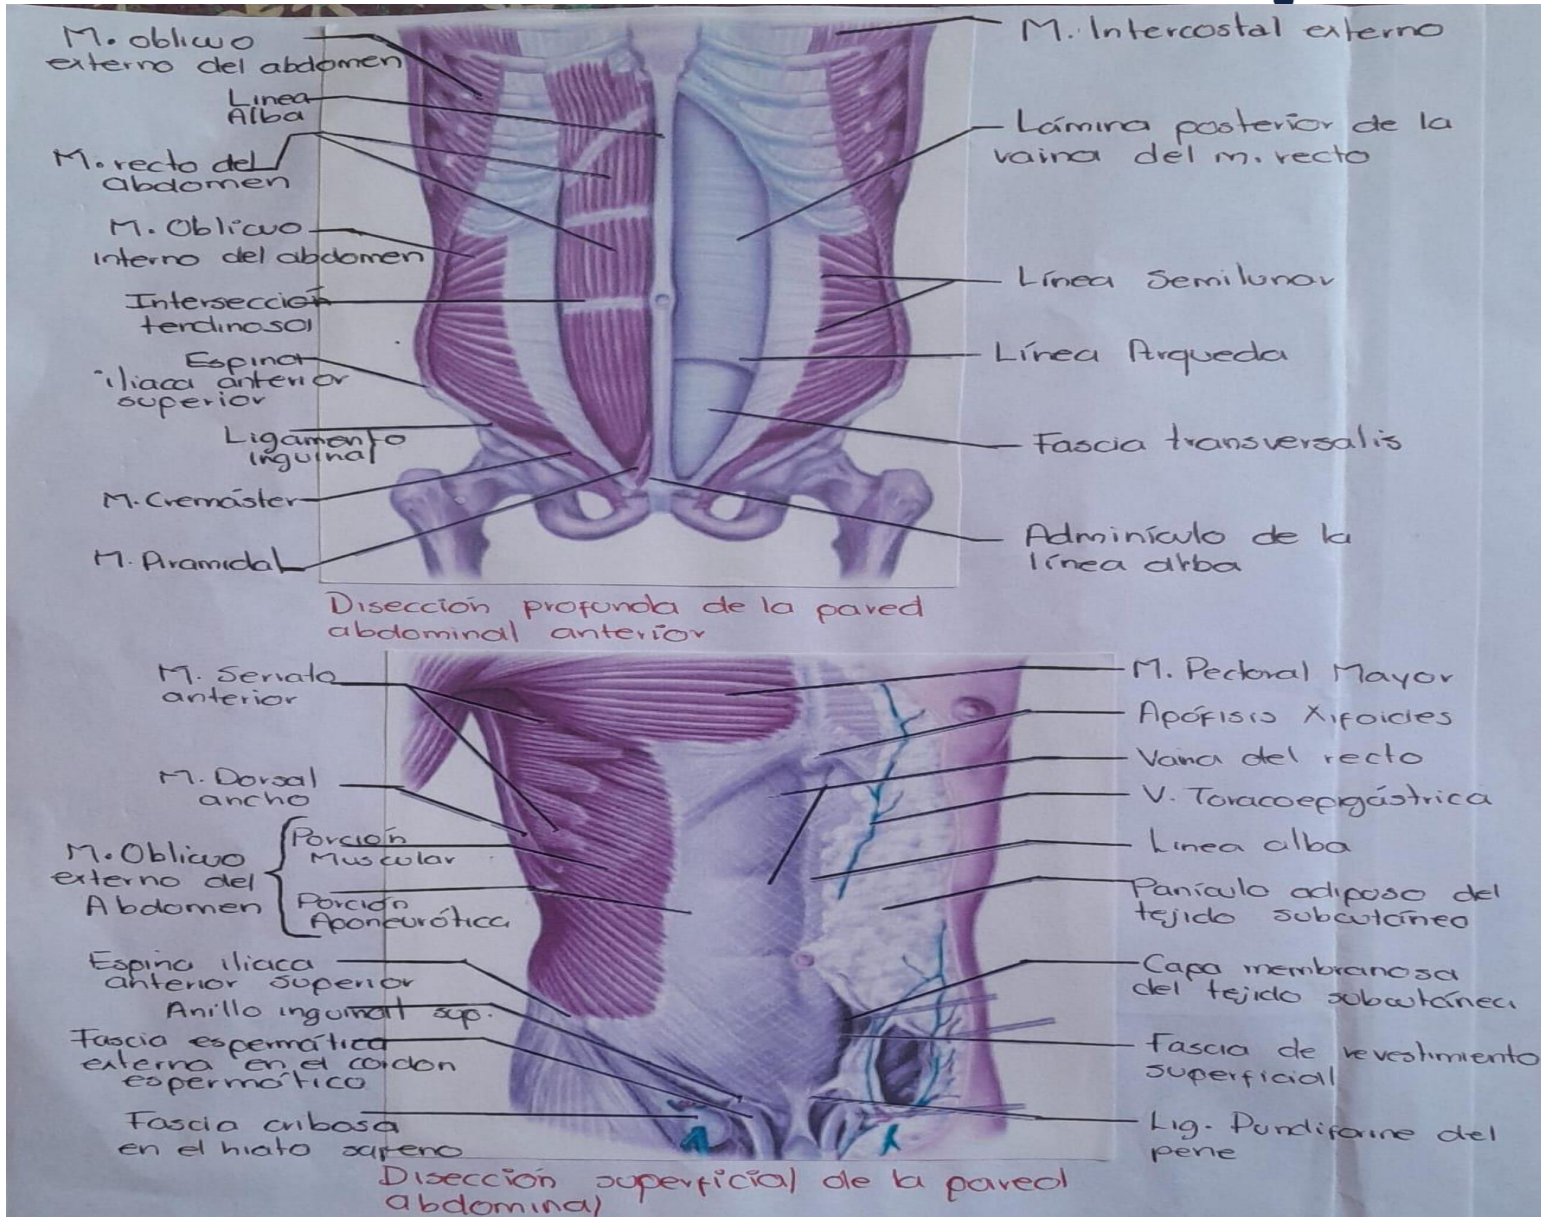 M. oblicuo
externo del abdomen
Linea
Alba
M. recto del
abdomen
M. Oblicuo
interno del abdomen
Intersección
tendinosa
Espina
iliaca anterior
superior
Ligamento
inguinal
M. Cremáster
M. Piramidal
M. Intercostal externo
Lámina posterior de la
vaina del m. recto
Línea Semilunar
Línea Arqueda
Fascia transversalis
Adminículo de la
línea alba
Disección profunda de la pared
abdominal anterior
M. Serrato
anterior
M. Dorsal
ancho
M. Oblicuo
externo del
Abdomen
Porción
Muscular
Porción
Aponeurótica
Espina iliaca
anterior superior
Anillo inguinal sup.
Fascia espermática
externa en el cordon
espermático
Fascia cribosa
en el hiato safeno
M. Pectoral Mayor
Apófisis Xifoides
Vaina del recto
V. Toracoepigástrica
Linea alba
Panículo adiposo del
tejido subcutáneo
Capa membranosa
del tejido subcutánea
Fascia de revestimiento
superficial
Lig. Fundiforme del
pene
Disección superficial de la pared
abdominal